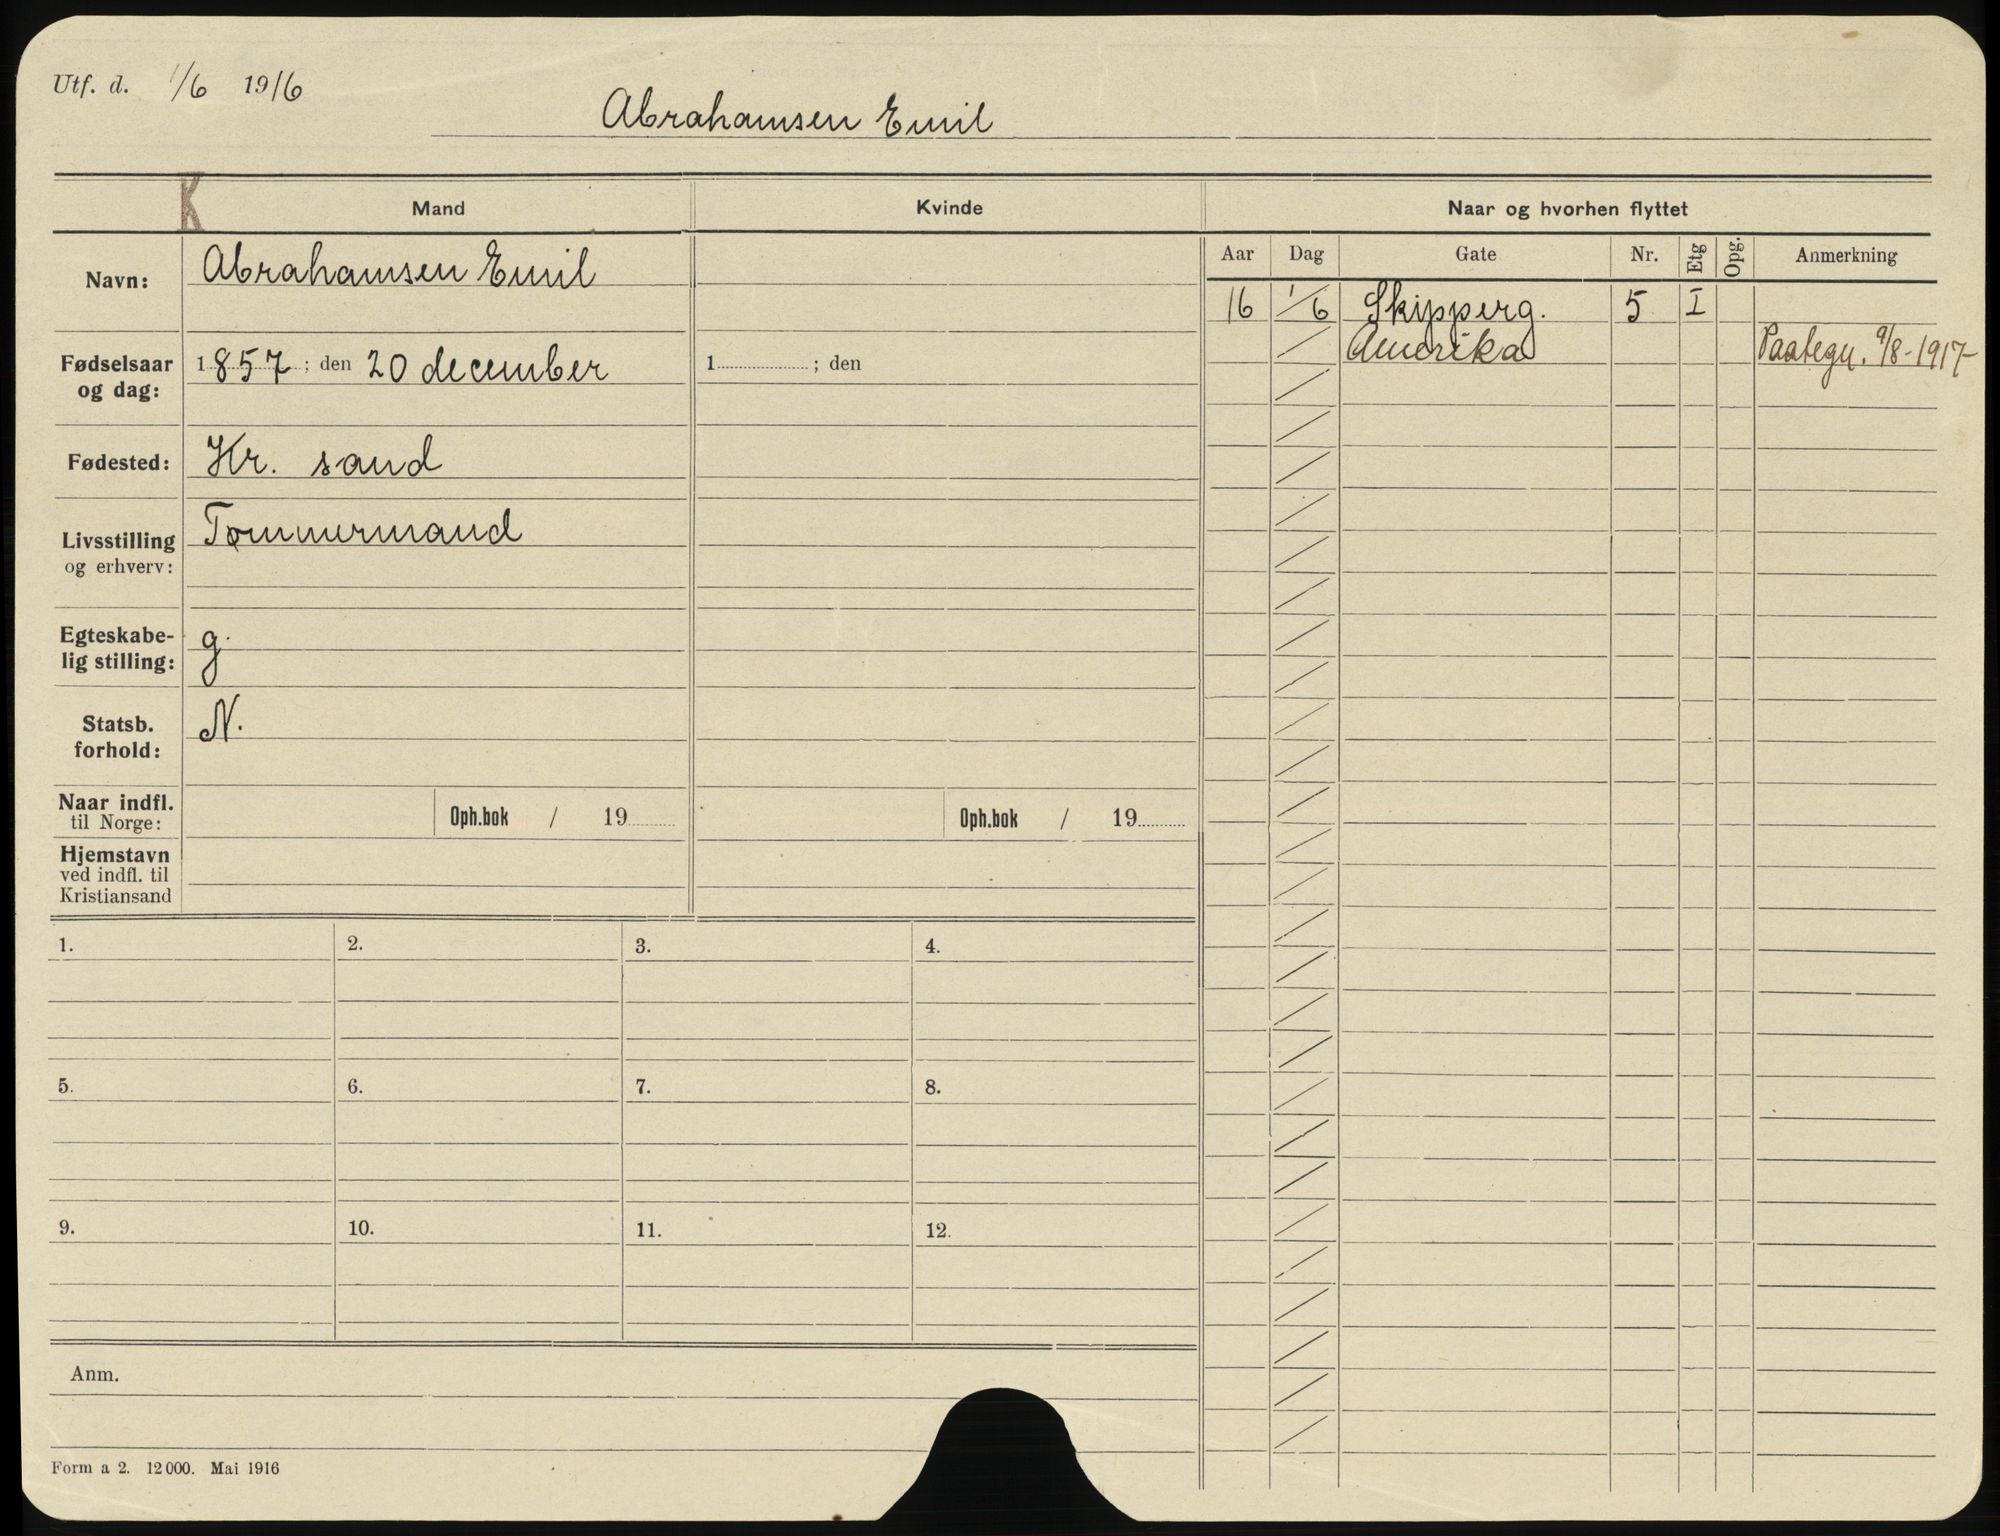 Utf. d. 1/6 1916
Abrahamsen Emil
K
Mand Kvinde Naar og hvorhen flyttet
Aar Dag Gate Nr. Etg Opg. Anmerkning
Navn: Abrahamsen Emil
16 1/6 Skipperg. 5 I
Amerika Paategn. 9/8-1917-
Fødselsaar og dag: 1857; den 20 december 1 ; den
Fødested: Kr. sand
Livsstilling og erhverv: Tømmermand
Egteskabe-
lig stilling: g.
Statsb.
forhold: N.
Naar indfl.
til Norge: Oph.bok / 19 Oph.bok / 19
Hjemstavn
ved indfl. til
Kristiansand
1. 2. 3. 4.
5. 6. 7. 8.
9. 10. 11. 12.
Anm.
Form a 2. 12 000. Mai 1916